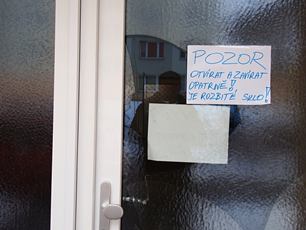 POZOR
OTVÍRAT A ZAVÍRAT
OPATRNĚ!
JE ROZBITÉ SKLO!